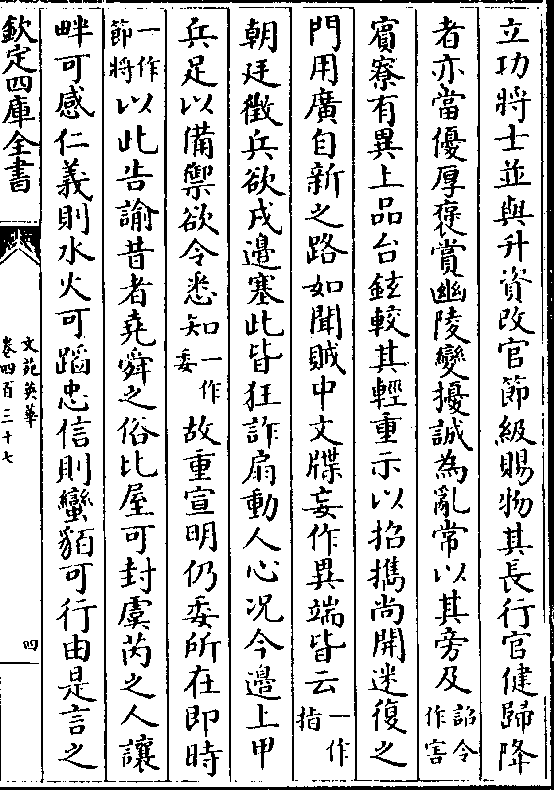 立功將士並與升資改官節級賜物其長行官健歸降
者亦當優厚褒賞幽陵變擾誠為亂常以其旁及詔令作害
賓寮有異上品台鉉較其輕重示以招擕尚開迷復之
門用廣自新之路如聞賊中文牒妄作異端皆云一作指
朝廷徵兵欲戍邊塞此皆狂詐扇動人心况今邊上甲
兵足以備禦欲令悉知一作委故重宣明仍委所在即時
一作節將以此告諭昔者堯舜之俗比屋可封虞芮之人讓
畔可感仁義則水火可蹈忠信則蠻貊可行由是言之
欽定四庫全書
文苑英華
卷四百三十七
四